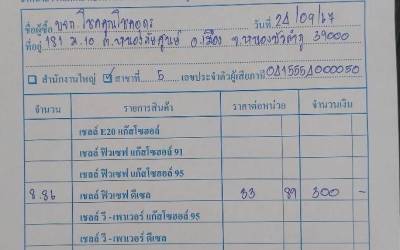 ชื่อผู้ซื้อ บจก. โชคคูณโชคอุดร วันที่ 24/09/67
ที่อยู่ 181 ม.10 ต.หนองภัยศูนย์ อ.เมือง จ.หนองบัวลำภู 39000
สำนักงานใหญ่ ✓ สาขาที่ 5 เลขประจำตัวผู้เสียภาษี 0415554000050
จำนวน รายการสินค้า ราคาต่อหน่วย จำนวนเงิน
เชลล์ E20 แก๊สโซฮอล์
เชลล์ ฟิวเซฟ แก๊สโซฮอล์ 91
เชลล์ ฟิวเซฟ แก๊สโซฮอล์ 95
8.86 เชลล์ ฟิวเซฟ ดีเซล 33 89 300 -
เชลล์ วี-เพาเวอร์ แก๊สโซฮอล์ 95
เชลล์ วี-เพาเวอร์ ดีเซล